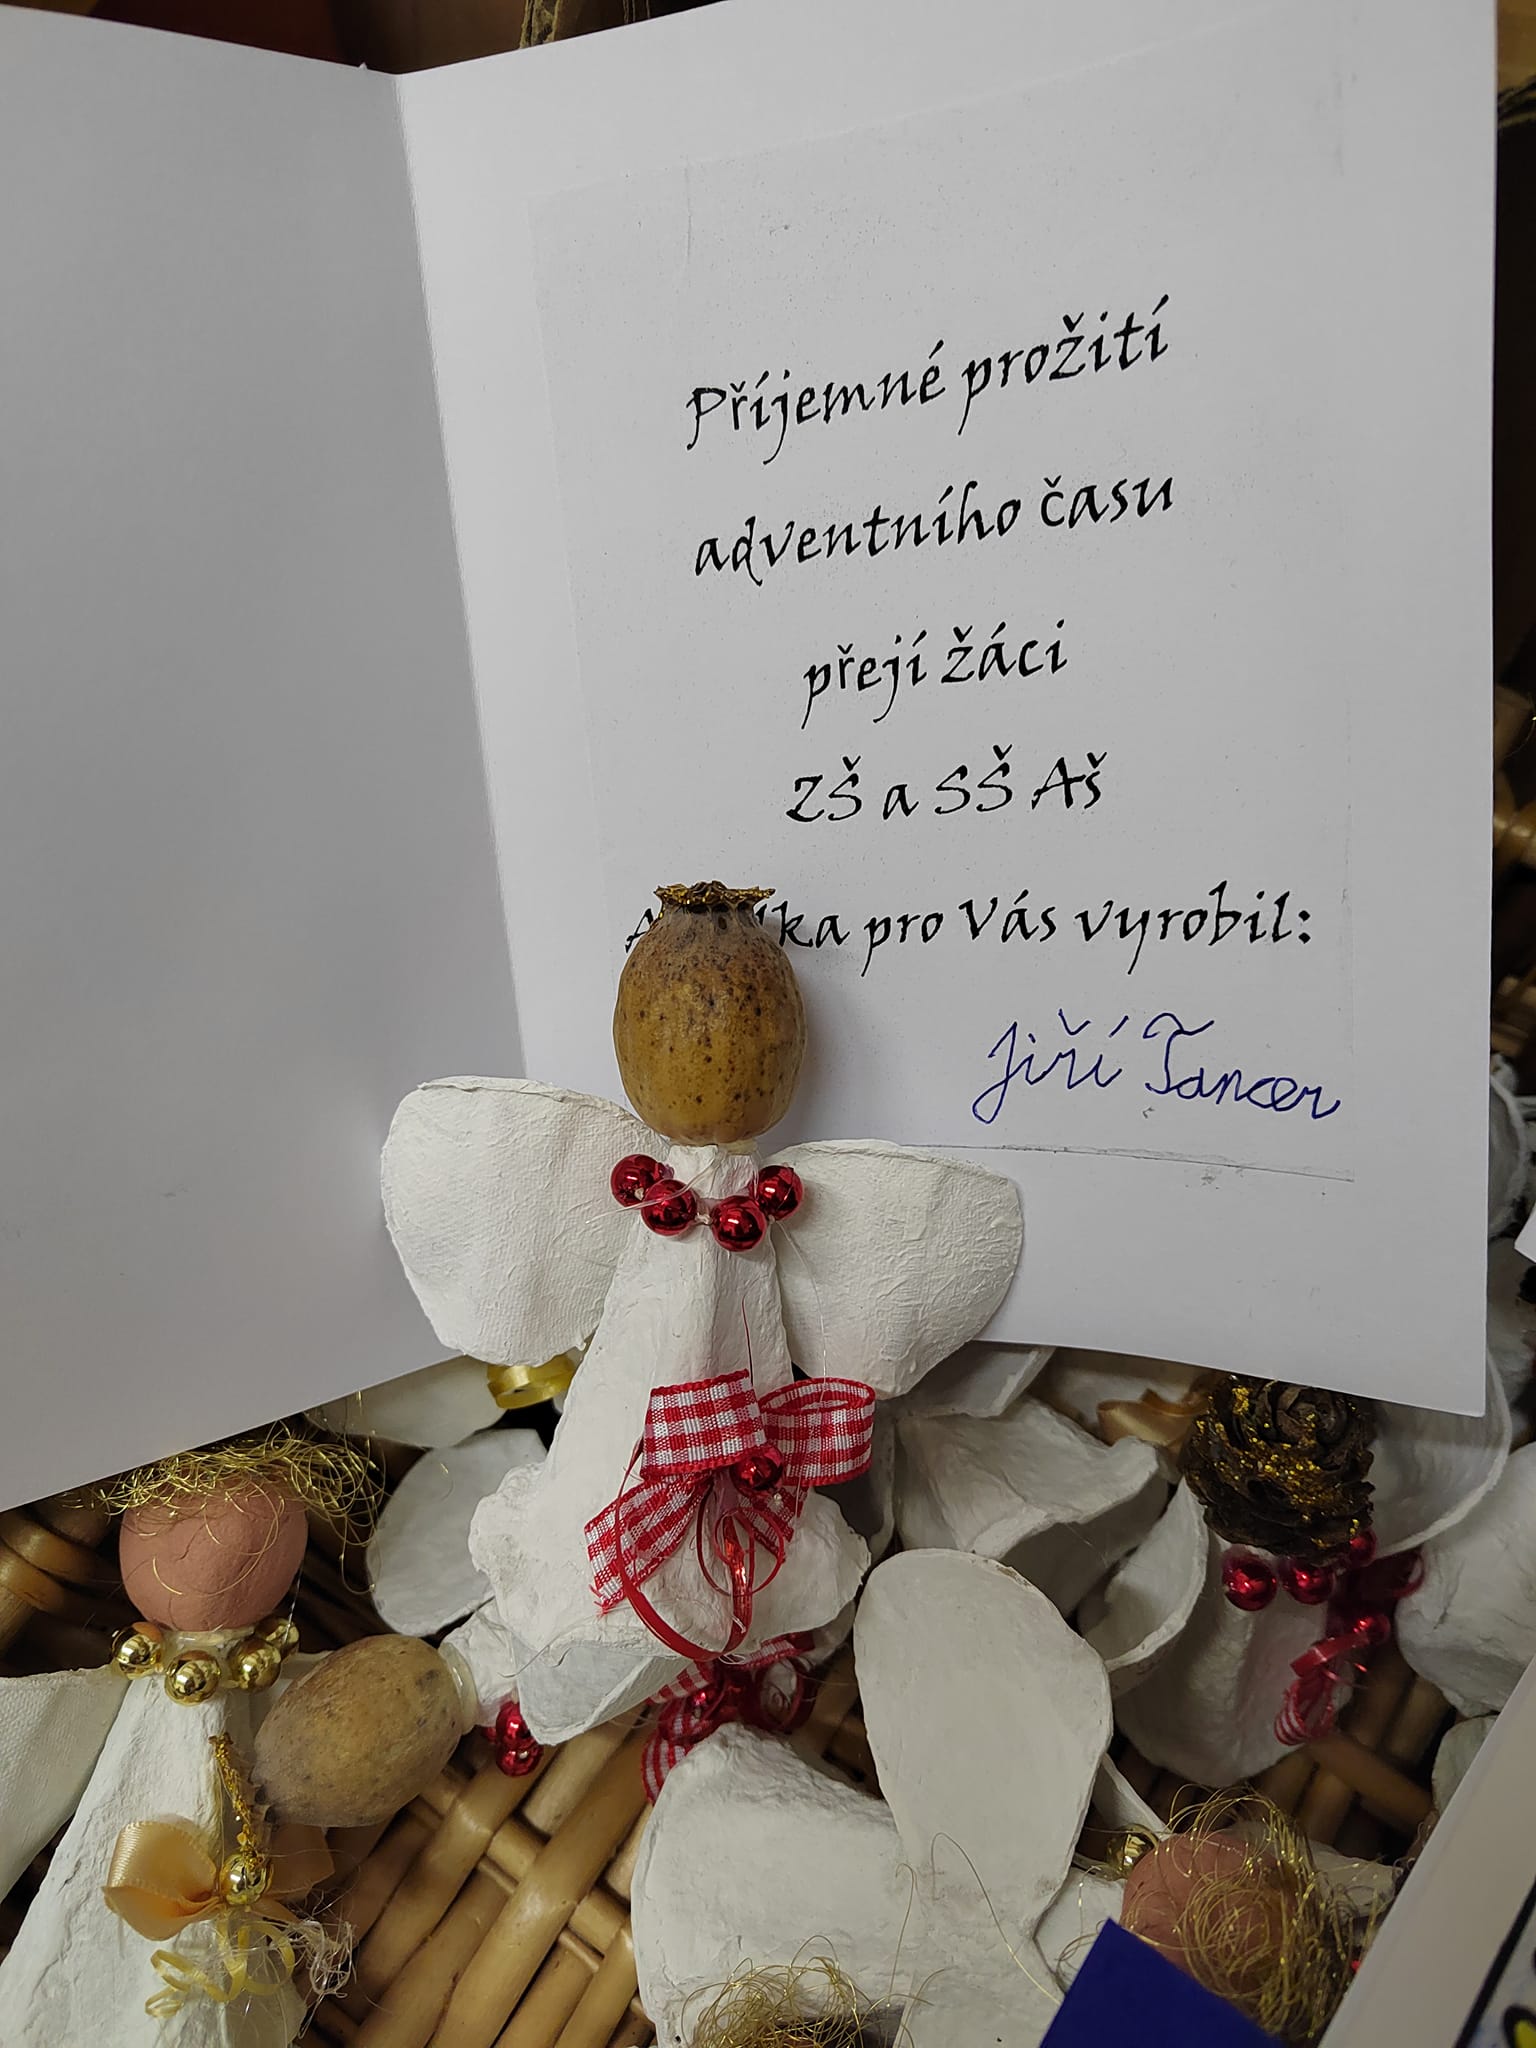 Příjemné prožití
adventního času
přejí žáci
ZŠ a SŠ Aš
pro Vás vyrobil:
Jiří Tancer